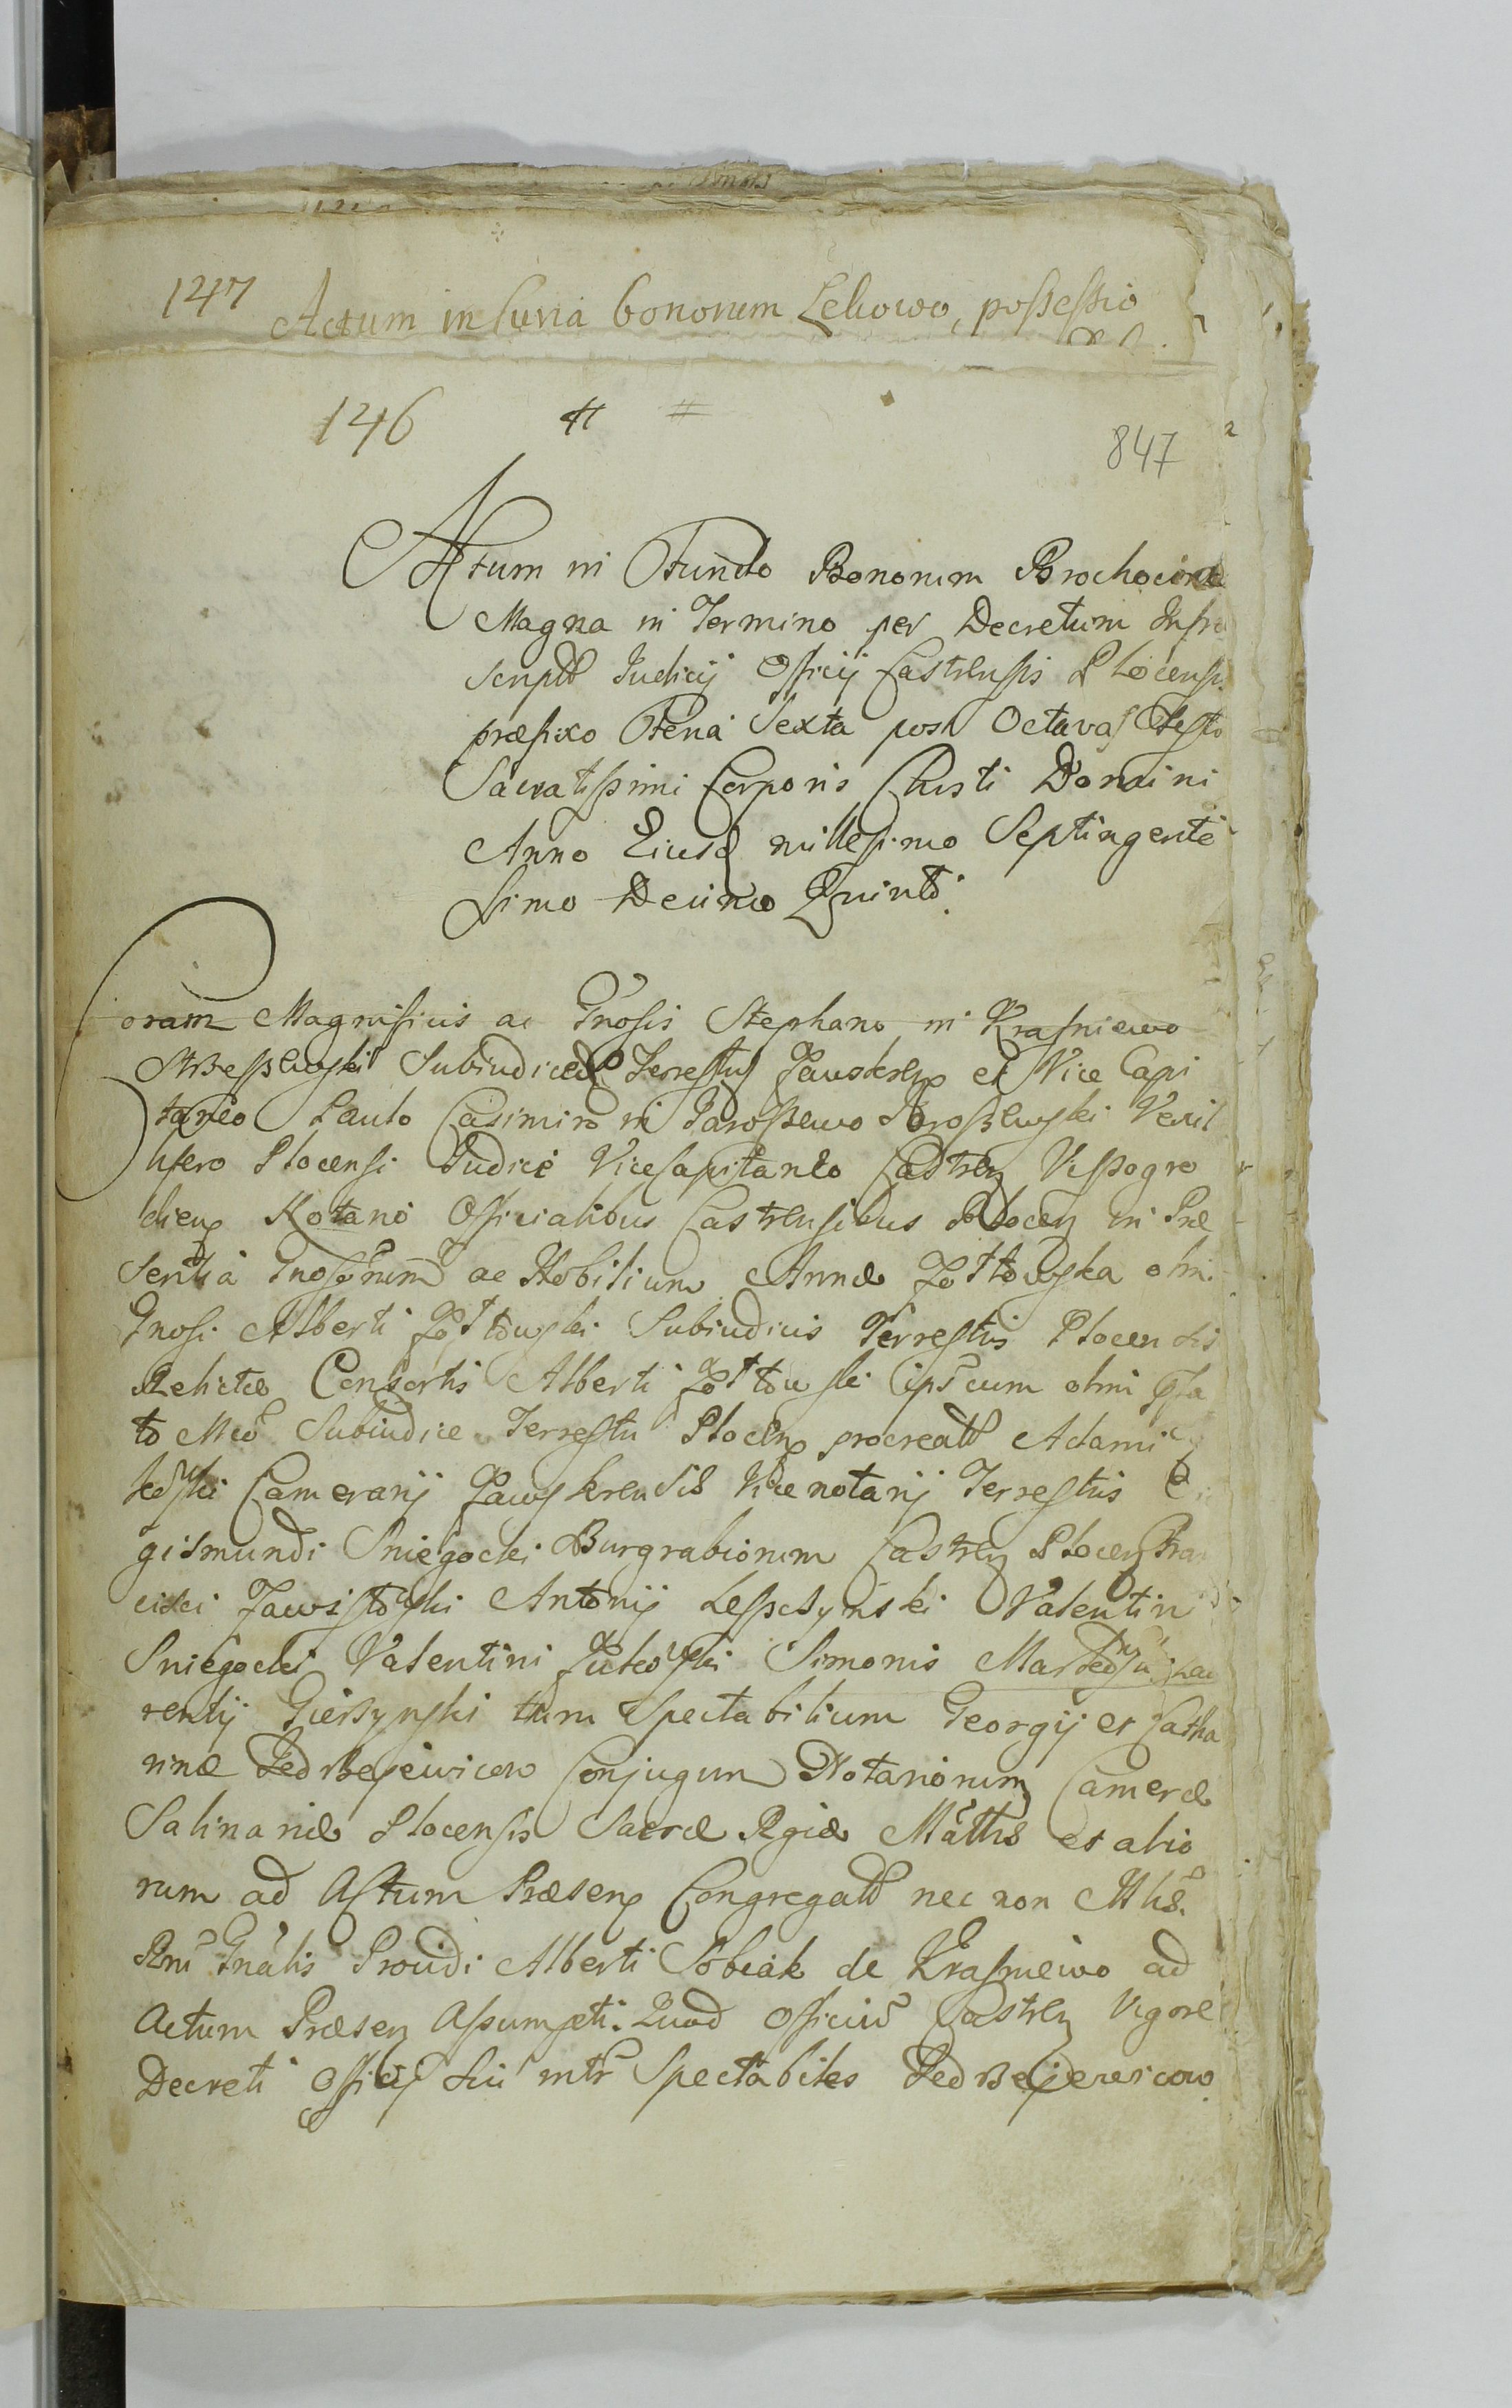 147 Actum in Curia bonorum Lelicowo, possessio
146 # #
847
Actum in Fundo Bonorum Brochocino
Magna in Termino per Decretum Infra
script Judicij Officij Castrensis Plocensi
præfixo Feria Sexta post Octavas Festo
Sacratissimi Corporis Christi Domini
Anno Eiusd millesimo Septingente
simo Decimo Quinto.
Coram Magnificis ac Gnosis Stephano in Krasniewo
Subiudice Terrestris Zauskren et Vice Capi
taneo Paulo Casimiro in Jaroszewo Jaroszewski Vexil
lifero Plocensi Judice Vicecapitaneo Castren Vissogro
dien Notario Officialibus Castrensibus Plocen in Præ
sentia Gnosorum ac Nobilium Annæ Zołtowska olim
Gnosi Alberti Zołtowski Subiudicis Terrestris Plocensis
Relictæ Consortis Alberti Zołtowski cum olim
to Mco Subiudice Terrestri Plocen procreat Adami
kowski Camerarij Zawskrensis Vicenotarij Terrestris
gismundi Sniegocki Burgrabiorum Castren Plocen Fran
cisci Zawistowski Antonij Lesczynski Valentini
Sniegocki Valentini Zutowski Simonis Lau
rentij Gierzynski tum Spectabilium Georgij et Catha
rinæ Conjugum Notariorum Cameræ
Salinariæ Plocensis Sacræ Rgiæ Mattis et alio
rum ad Actum Præsen Congregat nec non Mlis
Rni Gnalis Providi Alberti Sobiak de Krasniewo ad
Actum Præsen Assumpti. Quod Officiu Castren Vigore
Decreti Officij Sui intr Spectabiles